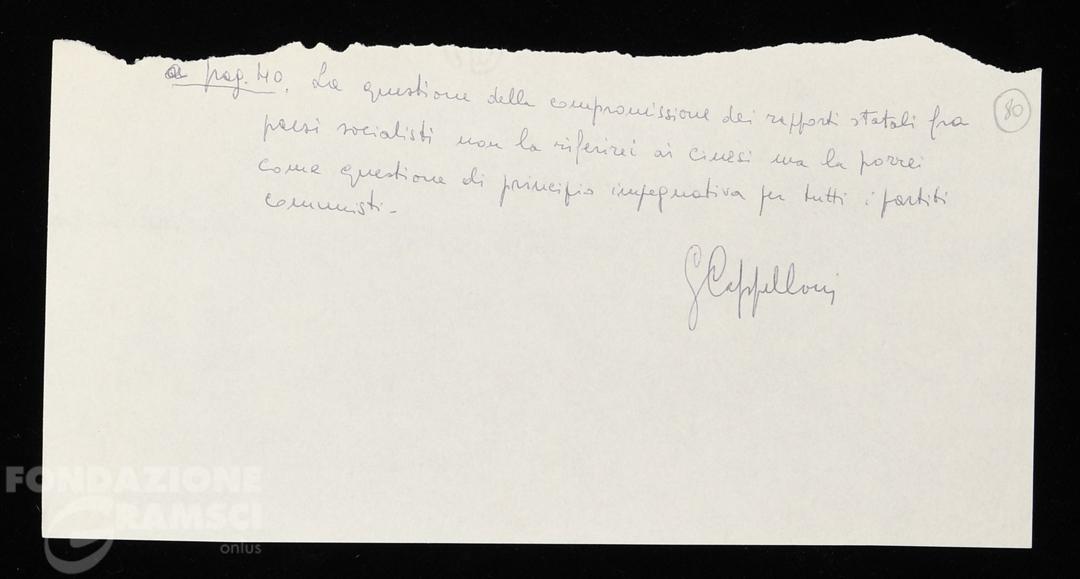 a pag. 40. La questione della compromissione dei rapporti statali fra
80
paesi socialisti non la riferirei ai cinesi ma la porrei
come questione di principio impegnativa per tutti i partiti
comunisti.
G Cappelloni
FONDAZIONE
GRAMSCI
onlus